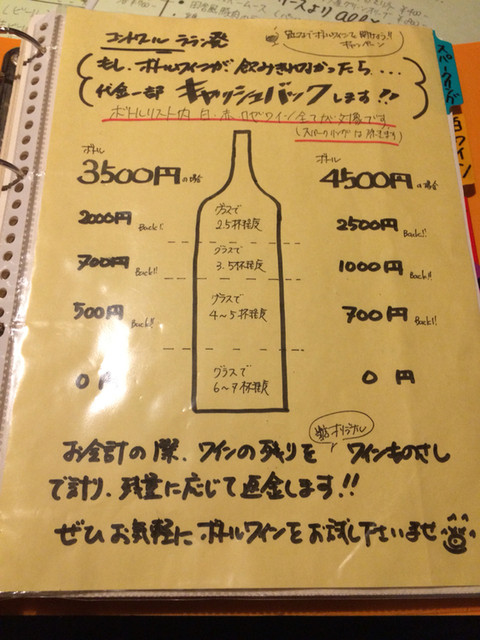 コントワール ララン発
気軽にボトルワインを開けよう!!
キャンペーン
もし、ボトルワインが飲みきれなかったら....
代金一部 キャッシュバックします!!
ボトルリスト内 白・赤・ロゼワイン全てが対象です
(スパークリングは除きます)
ボトル
3500円の場合
2000円 Back!!
700円 Back!!
500円 Back!!
0円
グラスで
2.5杯程度
グラスで
3.5杯程度
グラスで
4〜5杯程度
グラスで
6〜7杯程度
ボトル
4500円の場合
2500円 Back!!
1000円 Back!!
700円 Back!!
0円
お会計の際、ワインの残りを オリジナル ワインものさし
で計り、残量に応じて返金します!!
ぜひお気軽にボトルワインをお試し下さいませ
スパークリング
白ワイン